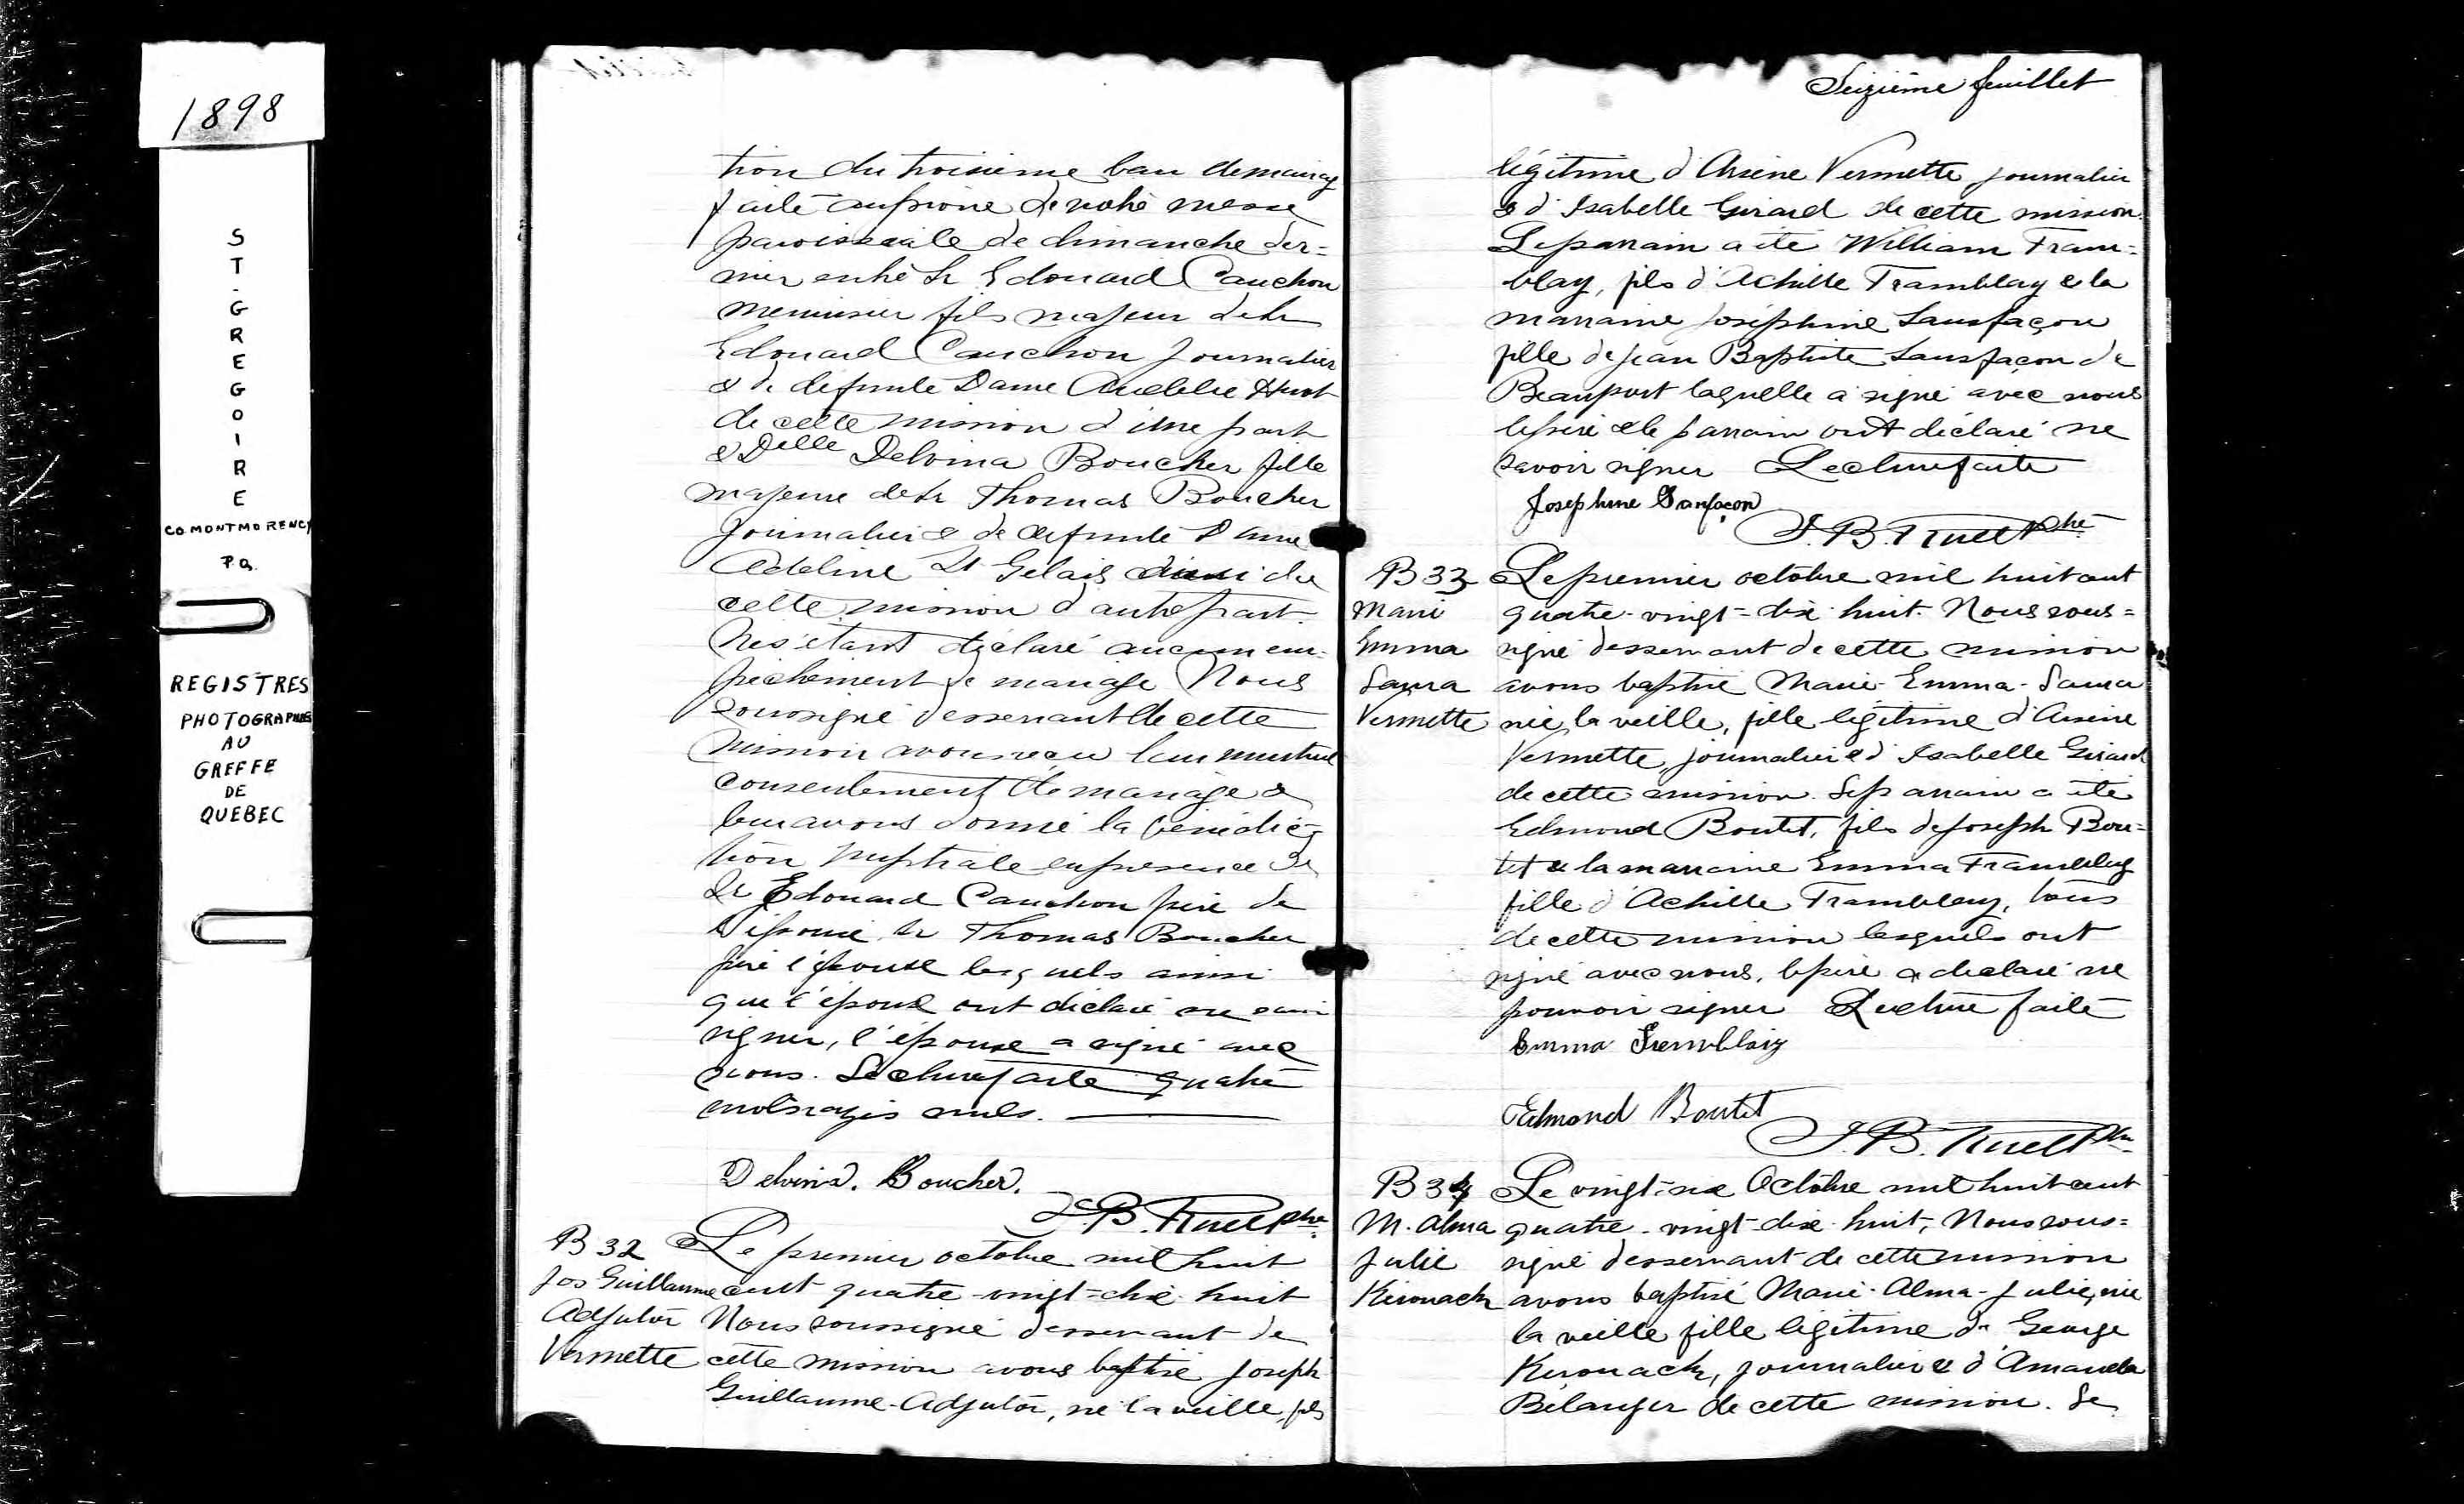 1898
ST-GREGOIRE
CO. MONTMORENCY
P.Q.
REGISTRES
PHOTOGRAPHIÉS
AU
GREFFE
DE
QUEBEC
tion du troisième ban de mariage
faite au prône de notre messe
paroissiale de dimanche der=
nier entre Sr Edouard Cauchon
menuisier fils majeur de Sr
Edouard Cauchon journalier
& de défunte Dame Huot
de cette mission d'une part
& Delle Delvina Boucher fille
majeure de Sr Thomas Boucher
journalier & de défunte Dame
Adeline St Gelais aussi de
cette mission d'autre part.
Ne s'étant déclaré aucun em-
pêchement de mariage Nous
soussigné desservant de cette
mission avons reçu leur mutuel
consentement de mariage &
leur avons donné la bénédic-
tion nuptiale en présence de
Sr Edouard Cauchon père de
l'époux, Sr Thomas Boucher
père l'épouse lesquels ainsi
que l'époux ont déclaré ne savoir
signer, l'épouse a signé avec
nous. Lecture faite quatre
mots rayés nuls.
Delvina. Boucher.
J.B. Ruel Ptre
B 32
Jos Guillaume
Adjutor
Vermette
Le premier octobre mil huit
cent quatre-vingt=dix-huit
Nous soussigné desservant de
cette mission avons baptisé Joseph
Guillaume-Adjutor, né la veille, fils
Seizième feuillet
légitime d'Arsène Vermette journalier
& d'Isabelle Girard de cette mission.
Le parrain a été William Tram=
blay, fils d'Achille Tramblay & la
marraine Joséphine Sansfaçon
fille de Jean Baptiste Sansfaçon de
Beauport laquelle a signé avec nous
le père & le parrain ont déclaré ne
savoir signer Lecture faite
Josephine Sanfaçon
J.B. Ruel Ptre
B 33
Marie
Emma
Laura
Vermette
Le premier octobre mil huit cent
quatre-vingt=dix-huit. Nous sous=
signé desservant de cette mission
avons baptisé Marie-Emma-Laura
née la veille, fille légitime d'Arsène
Vermette, journalier & d'Isabelle Girard
de cette mission. Le parrain a été
Edmond Boutet, fils de Joseph Bou=
tet & la marraine Emma Tramblay
fille d'Achille Tramblay, tous
de cette mission lesquels ont
signé avec nous, le père a déclaré ne
pouvoir signer Lecture faite
Emma Tremblay
Edmond Boutet
J.B. Ruel Ptre
B 34
M. Alma
Julie
Kirouack
Le vingt-six Octobre mil huit cent
quatre-vingt-dix-huit, Nous sous=
signé desservant de cette mission
avons baptisé Marie-Alma-Julie, née
la veille fille légitime de George
Kirouack, journalier & d'Amanda
Bélanger de cette mission. Le